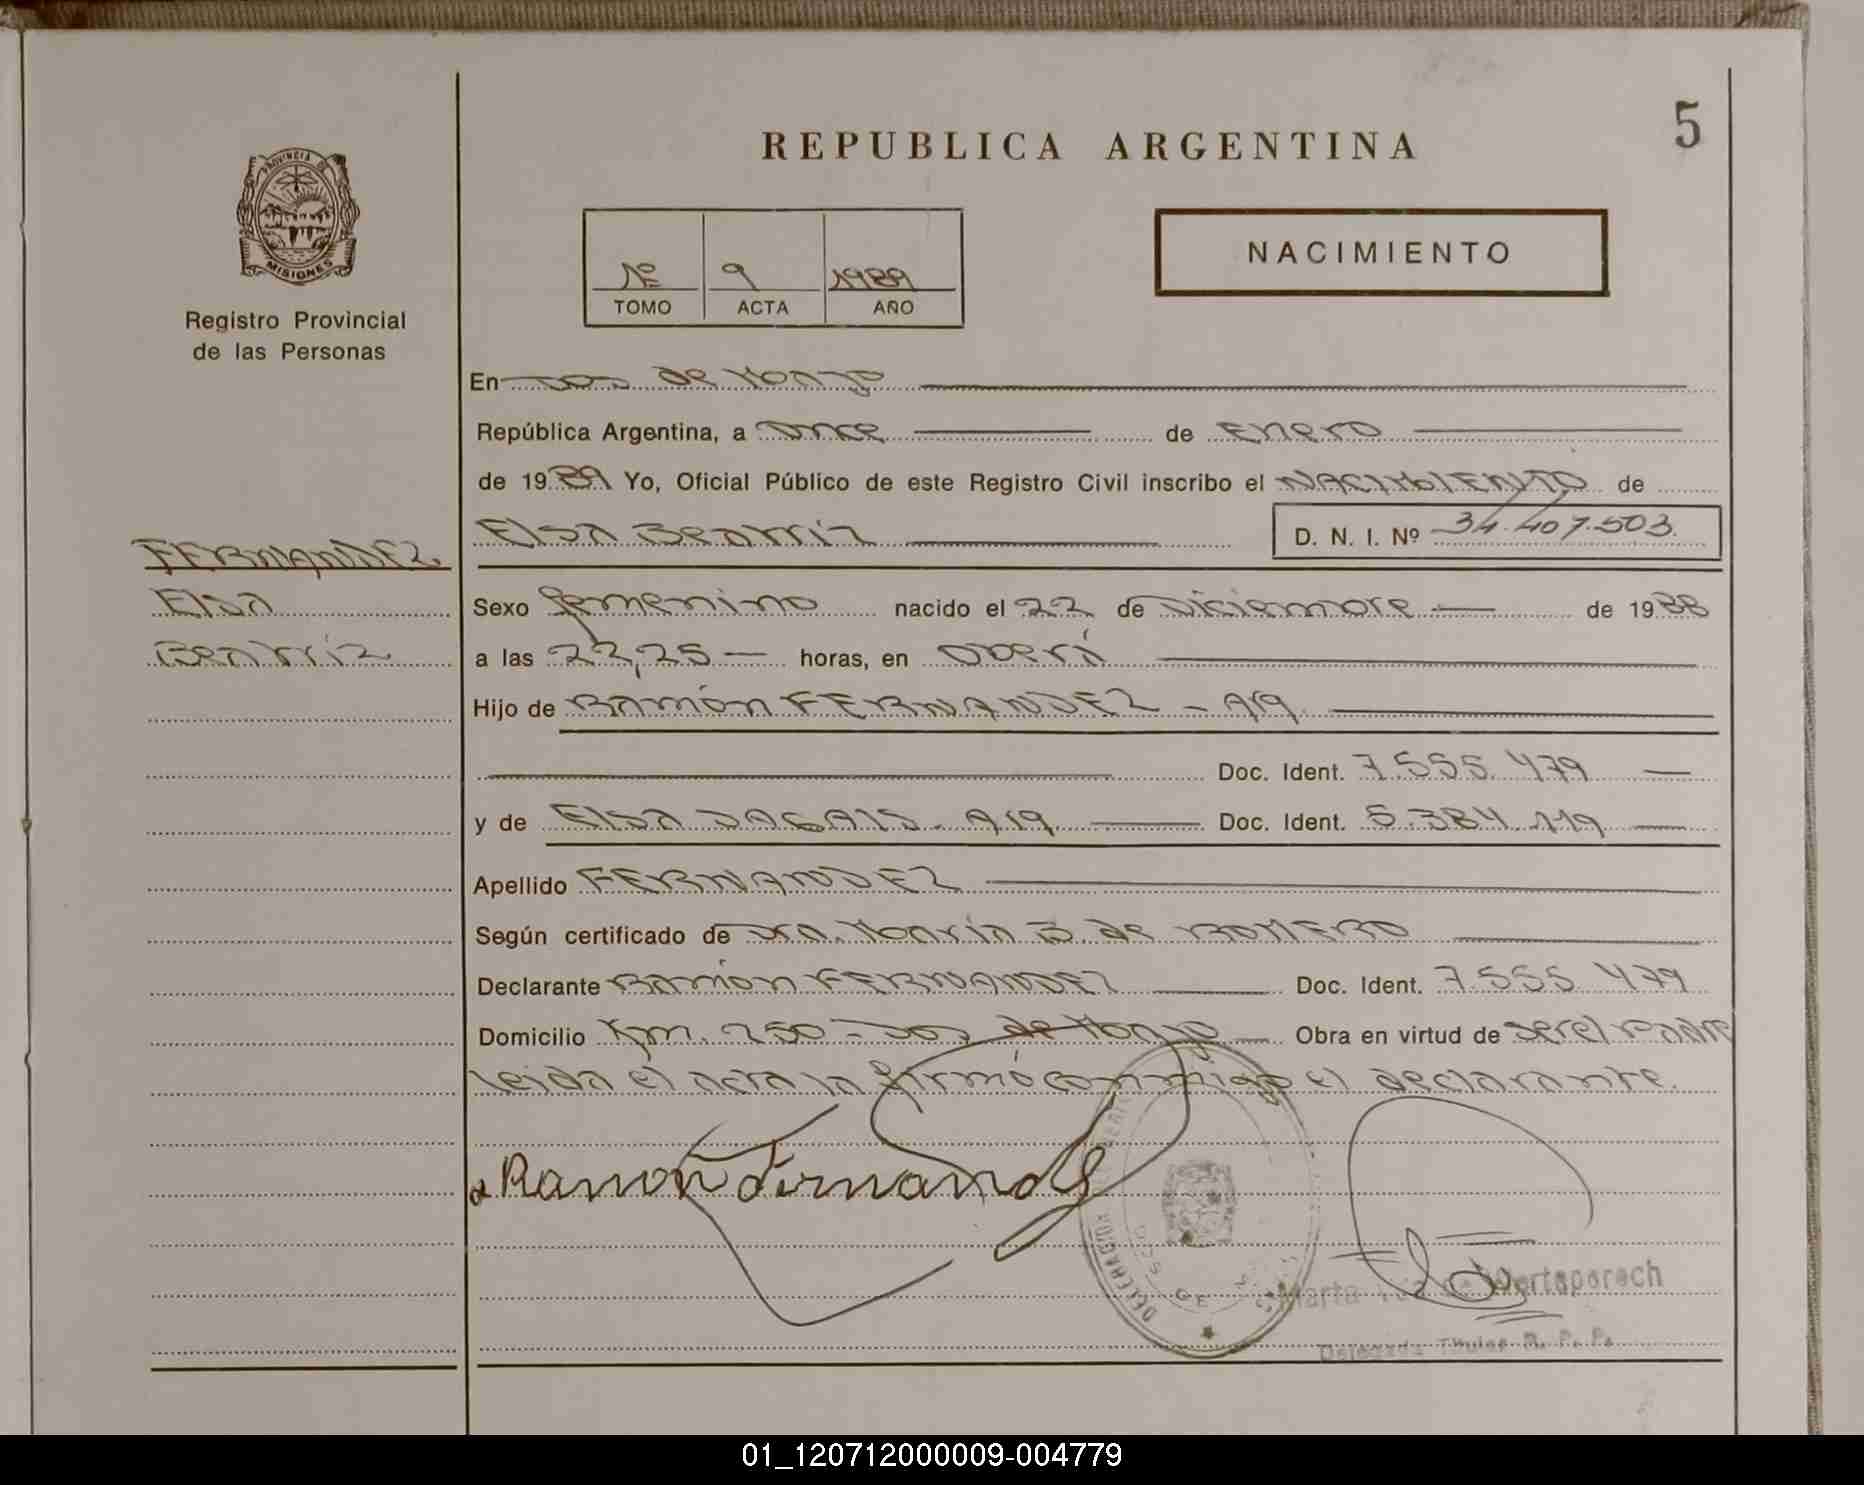 5
REPUBLICA ARGENTINA
PROVINCIA DE
MISIONES
Registro Provincial
de las Personas
NACIMIENTO
1º 9 1989
TOMO ACTA AÑO
En Dos de Mayo
República Argentina, a once de Enero
de 1989 Yo, Oficial Público de este Registro Civil inscribo el NACIMIENTO de
Elsa Beatriz D. N. I. Nº 34.407.503
FERNANDEZ
Elsa
Beatriz
Sexo femenino nacido el 22 de Diciembre de 1988
a las 22,25 horas, en Oberá
Hijo de Ramón FERNANDEZ - Arg.
Doc. Ident. 7.555.479
y de Elsa Arg. Doc. Ident. 5.384.119
Apellido FERNANDEZ
Según certificado de Dra. María B. de ROMERO
Declarante Ramón FERNANDEZ Doc. Ident. 7.555.479
Domicilio Km. 250 - Dos de Mayo Obra en virtud de ser el padre
leida el acta la firmó conmigo el declarante.
Ramon Fernandez
DELEGACION
Marta de
Delegada Titular R. P. P.
01_120712000009-004779